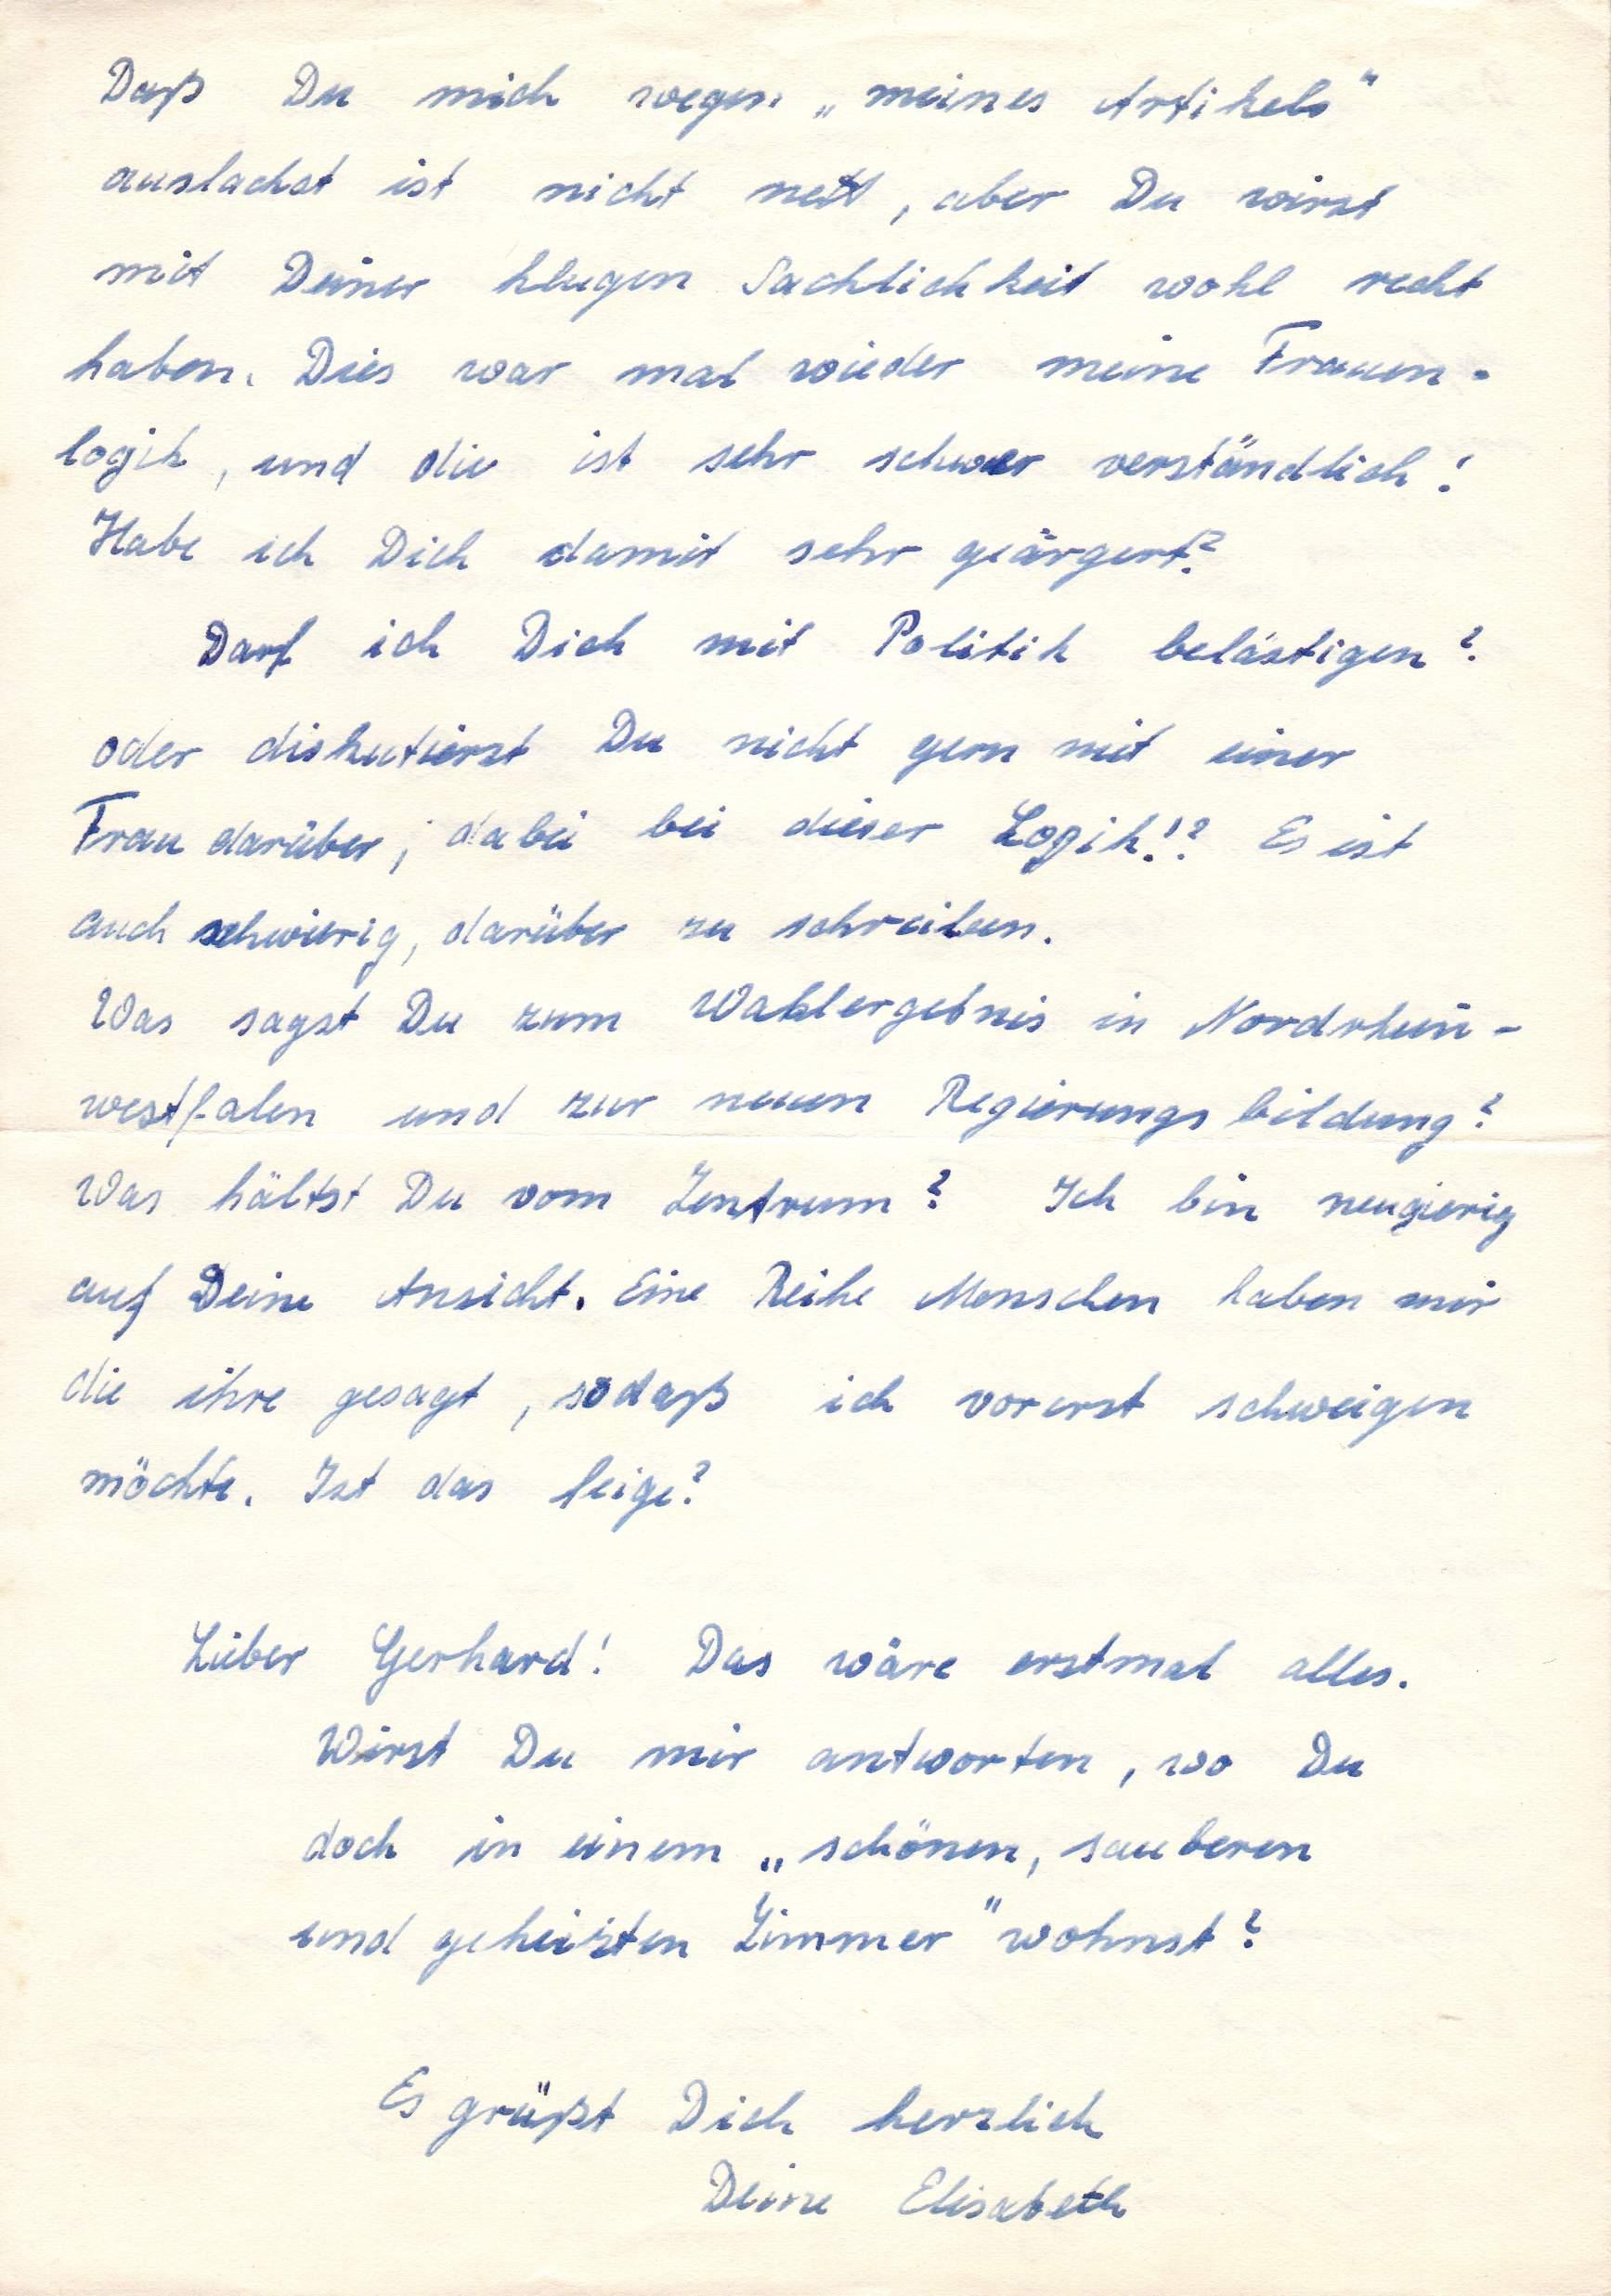 Daß Du mich wegen „meines Artikels"
auslachst ist nicht nett, aber Du wirst
mit Deiner klugen Sachlichkeit wohl recht
haben. Dies war mal wieder meine Frauen-
logik, und die ist sehr schwer verständlich!
Habe ich Dich damit sehr geärgert?
Darf ich Dich mit Politik belästigen?
oder diskutierst Du nicht gern mit einer
Frau darüber, dabei bei dieser Logik!? Es ist
auch schwierig, darüber zu schreiben.
Was sagst Du zum Wahlergebnis in Nordrhein-
westfalen und zur neuen Regierungsbildung?
Was hältst Du vom Zentrum? Ich bin neugierig
auf Deine Ansicht. Eine Reihe Menschen haben mir
die ihre gesagt, sodaß ich vorerst schweigen
möchte. Ist das feige?
Lieber Gerhard! Das wäre erstmal alles.
Wirst Du mir antworten, wo Du
doch in einem „schönen, sauberen
und geheizten Zimmer" wohnst?
Es grüßt Dich herzlich
Deine Elisabeth